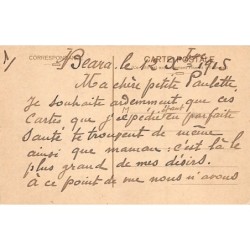 CORRESPONDANCE
CARTE POSTALE
Béara, le 1915
Ma chère petite Paulette,
Je souhaite ardemment que ces
Cartes que j'expédient en parfaite
Santé te trouvent de même
ainsi que maman. c'est là le
plus grand de mes désirs.
à ce point de me nous n'avons